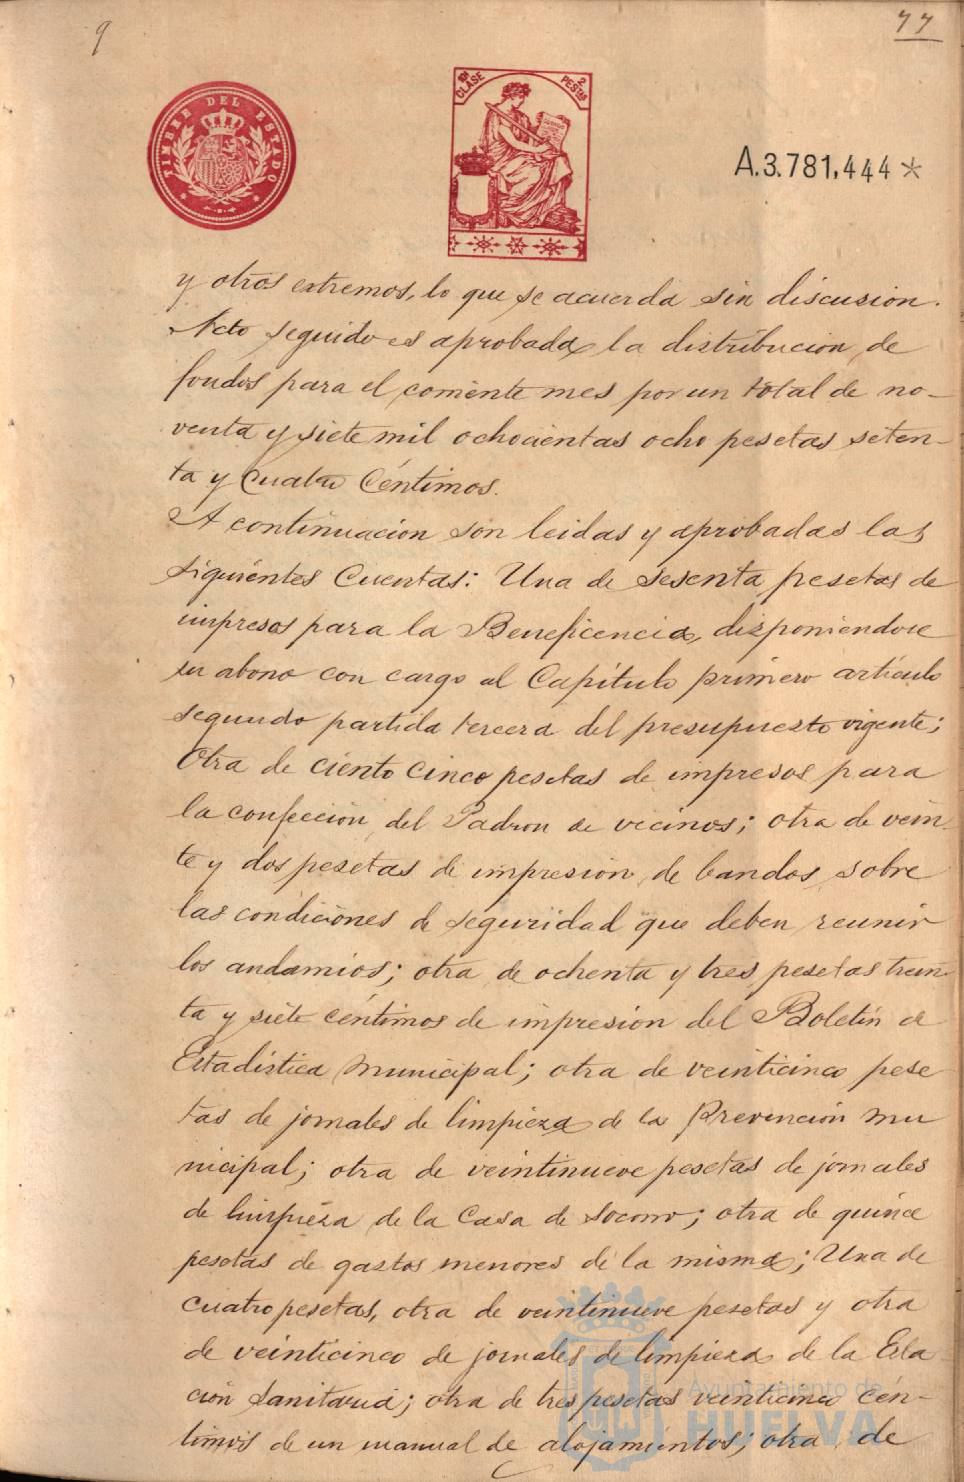 9
77
TIMBRE DEL ESTADO
10ª CLASE
2 PESTAS
A.3.781,444*
y otros extremos, lo que se acuerda sin discusion.
Acto seguido es aprobada la distribucion de
fondos para el corriente mes por un total de no-
venta y siete mil ochocientas ocho pesetas seten-
ta y cuatro Céntimos.
A continuacion son leidas y aprobadas las
siguientes Cuentas: Una de sesenta pesetas de
impresos para la Beneficencia, disponiendose
su abono con cargo al Capítulo primero artículo
segundo partida tercera del presupuesto vigente;
Otra de ciento cinco pesetas de impresos para
la confeccion del Padron de vecinos; otra de vein-
te y dos pesetas de impresion de bandos sobre
las condiciones de seguridad que deben reunir
los andamios; otra de ochenta y tres pesetas trein-
ta y siete céntimos de impresion del Boletin de
Estadistica Municipal; otra de veinticinco pese
tas de jornales de limpieza de la Prevención mu
nicipal; otra de veintinueve pesetas de jornales
de limpieza de la Casa de Socorro; otra de quince
pesetas de gastos menores de la misma; Una de
cuatro pesetas, otra de veintinueve pesetas y otra
de veinticinco de jornales de limpieza de la Esta
ción Sanitaria; otra de tres pesetas veinticinco cén-
timos de un manual de alojamientos; otra de
Ayuntamiento de
HUELVA